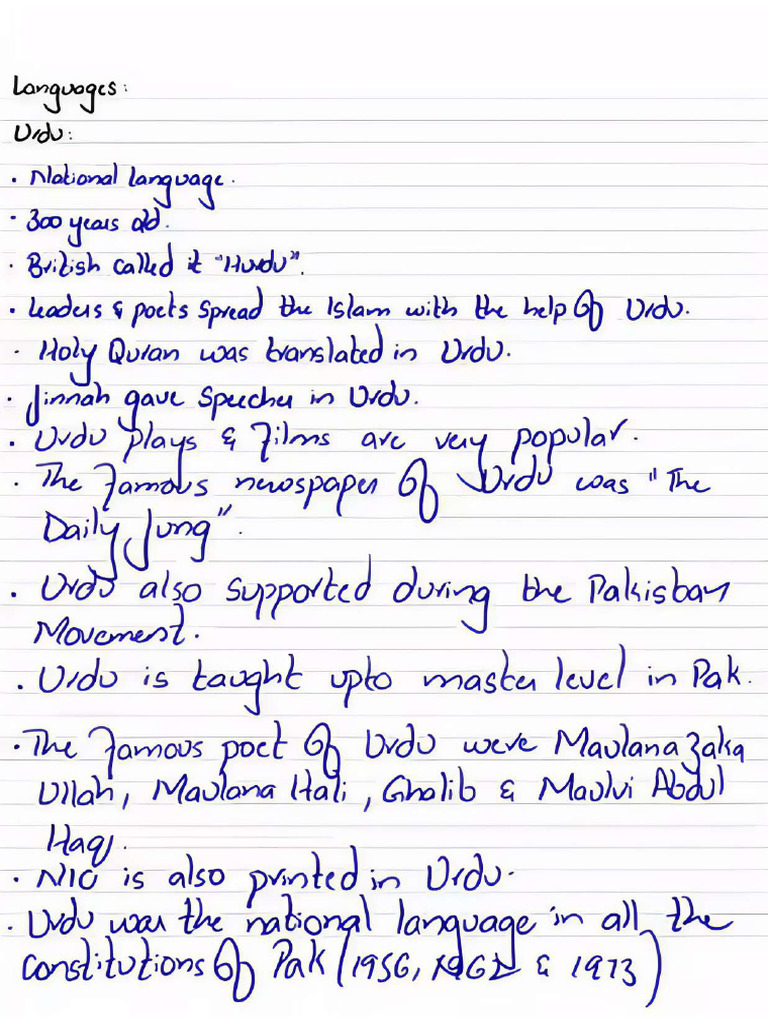 Languages:
Urdu:
· National language.
· 300 years old.
· British called it "Hurdu".
· Leaders & poets spread the Islam with the help of Urdu.
· Holy Quran was translated in Urdu.
· Jinnah gave speeches in Urdu.
· Urdu plays & Films are very popular.
· The famous newspaper of Urdu was "The
Daily Jung".
· Urdu also supported during the Pakistan
Movement.
· Urdu is taught upto master level in Pak.
· The famous poet of Urdu were Maulana Zaka
Ullah, Maulana Hali, Ghalib & Maulvi Abdul
Haq.
· NIC is also printed in Urdu.
· Urdu was the national language in all the
constitutions of Pak (1956, 1962 & 1973)